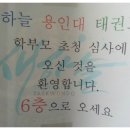 하늘 용인대 태권
학부모 초청 심사에
오신 것을
환영합니다.
TAEKWONDO
6층으로 오세요